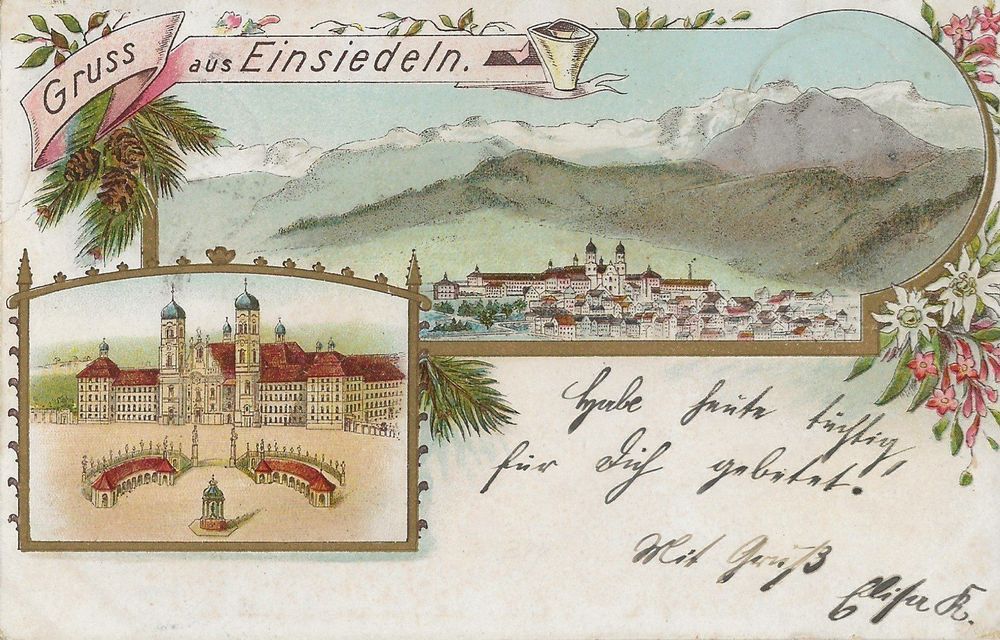 Gruss
aus Einsiedeln.
Habe heute tüchtig
für Dich gebetet.
Mit Gruß
Elisa K.